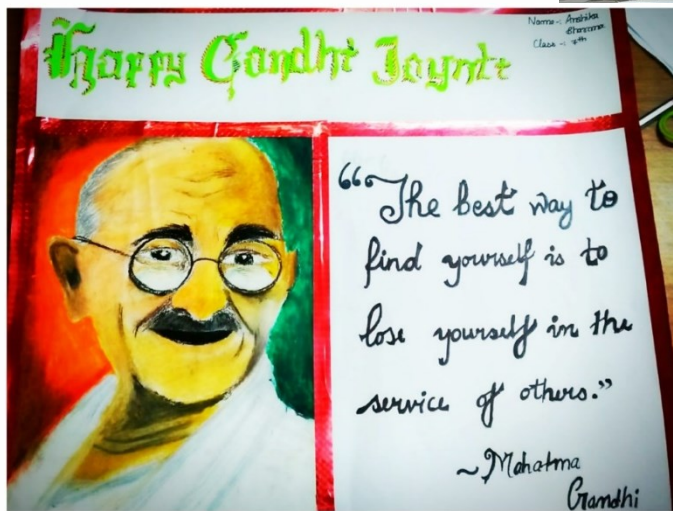 Happy Gandhi Jaynti
Name-: Anshika
Sharma
Class -: 7th
"The best way to
find yourself is to
lose yourself in the
service of others."
~Mahatma
Gandhi